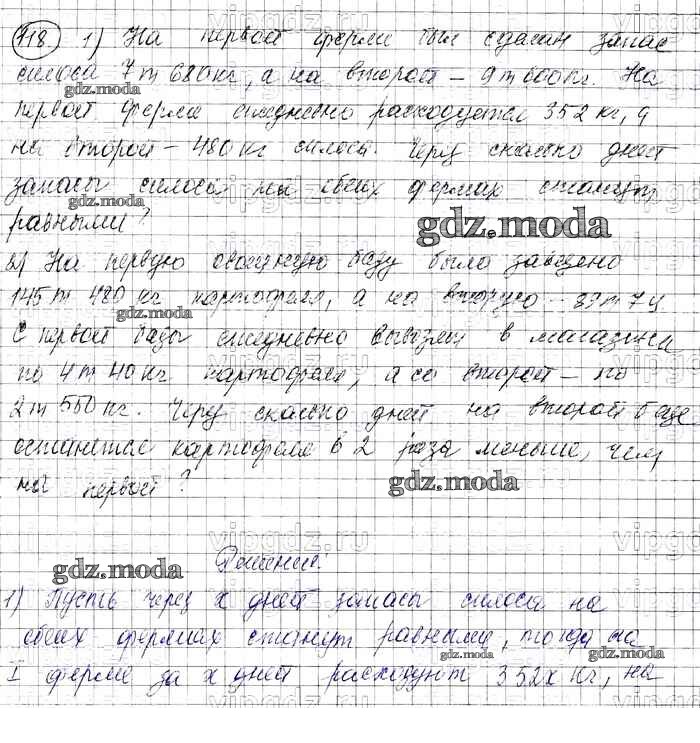 118. 1) На первой ферме был сделан запас
силоса 7 т 680 кг, а на второй – 9 т 600 кг. На
gdz.moda
первой ферме ежедневно расходуется 352 кг, а
на второй – 480 кг силоса. Через сколько дней
запасы силоса на обеих фермах станут
gdz.moda
равными?
gdz.moda
2) На первую овощную базу было завезено
145 т 480 кг картофеля, а на вторую – 89 т 7 ц.
gdz.moda
С первой базы ежедневно вывозят в магазины
по 4 т 40 кг картофеля, а со второй – по
2 т 550 кг. Через сколько дней на второй базе
останется картофеля в 2 раза меньше, чем
на первой?
gdz.moda
Решение.
gdz.moda
1) Пусть через x дней запасы силоса на
обеих фермах станут равными, тогда на
gdz.moda gdz.moda
I ферме за x дней расходуют 352x кг, на